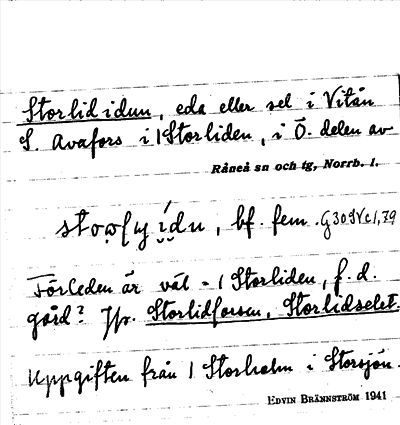 Storlididun, eda eller sel i Vitån
S. Avafors i /Storliden, i Ö. delen av
Råneå sn och tg, Norrb. l.
bf. fem. G30IVc1,79
Förleden är väl = / Storliden, f.d.
gård? Jfr. Storlidforsen, Storlidselet.
Uppgiften från / Storholm i Storsjön.
EDVIN BRÄNNSTRÖM 1941